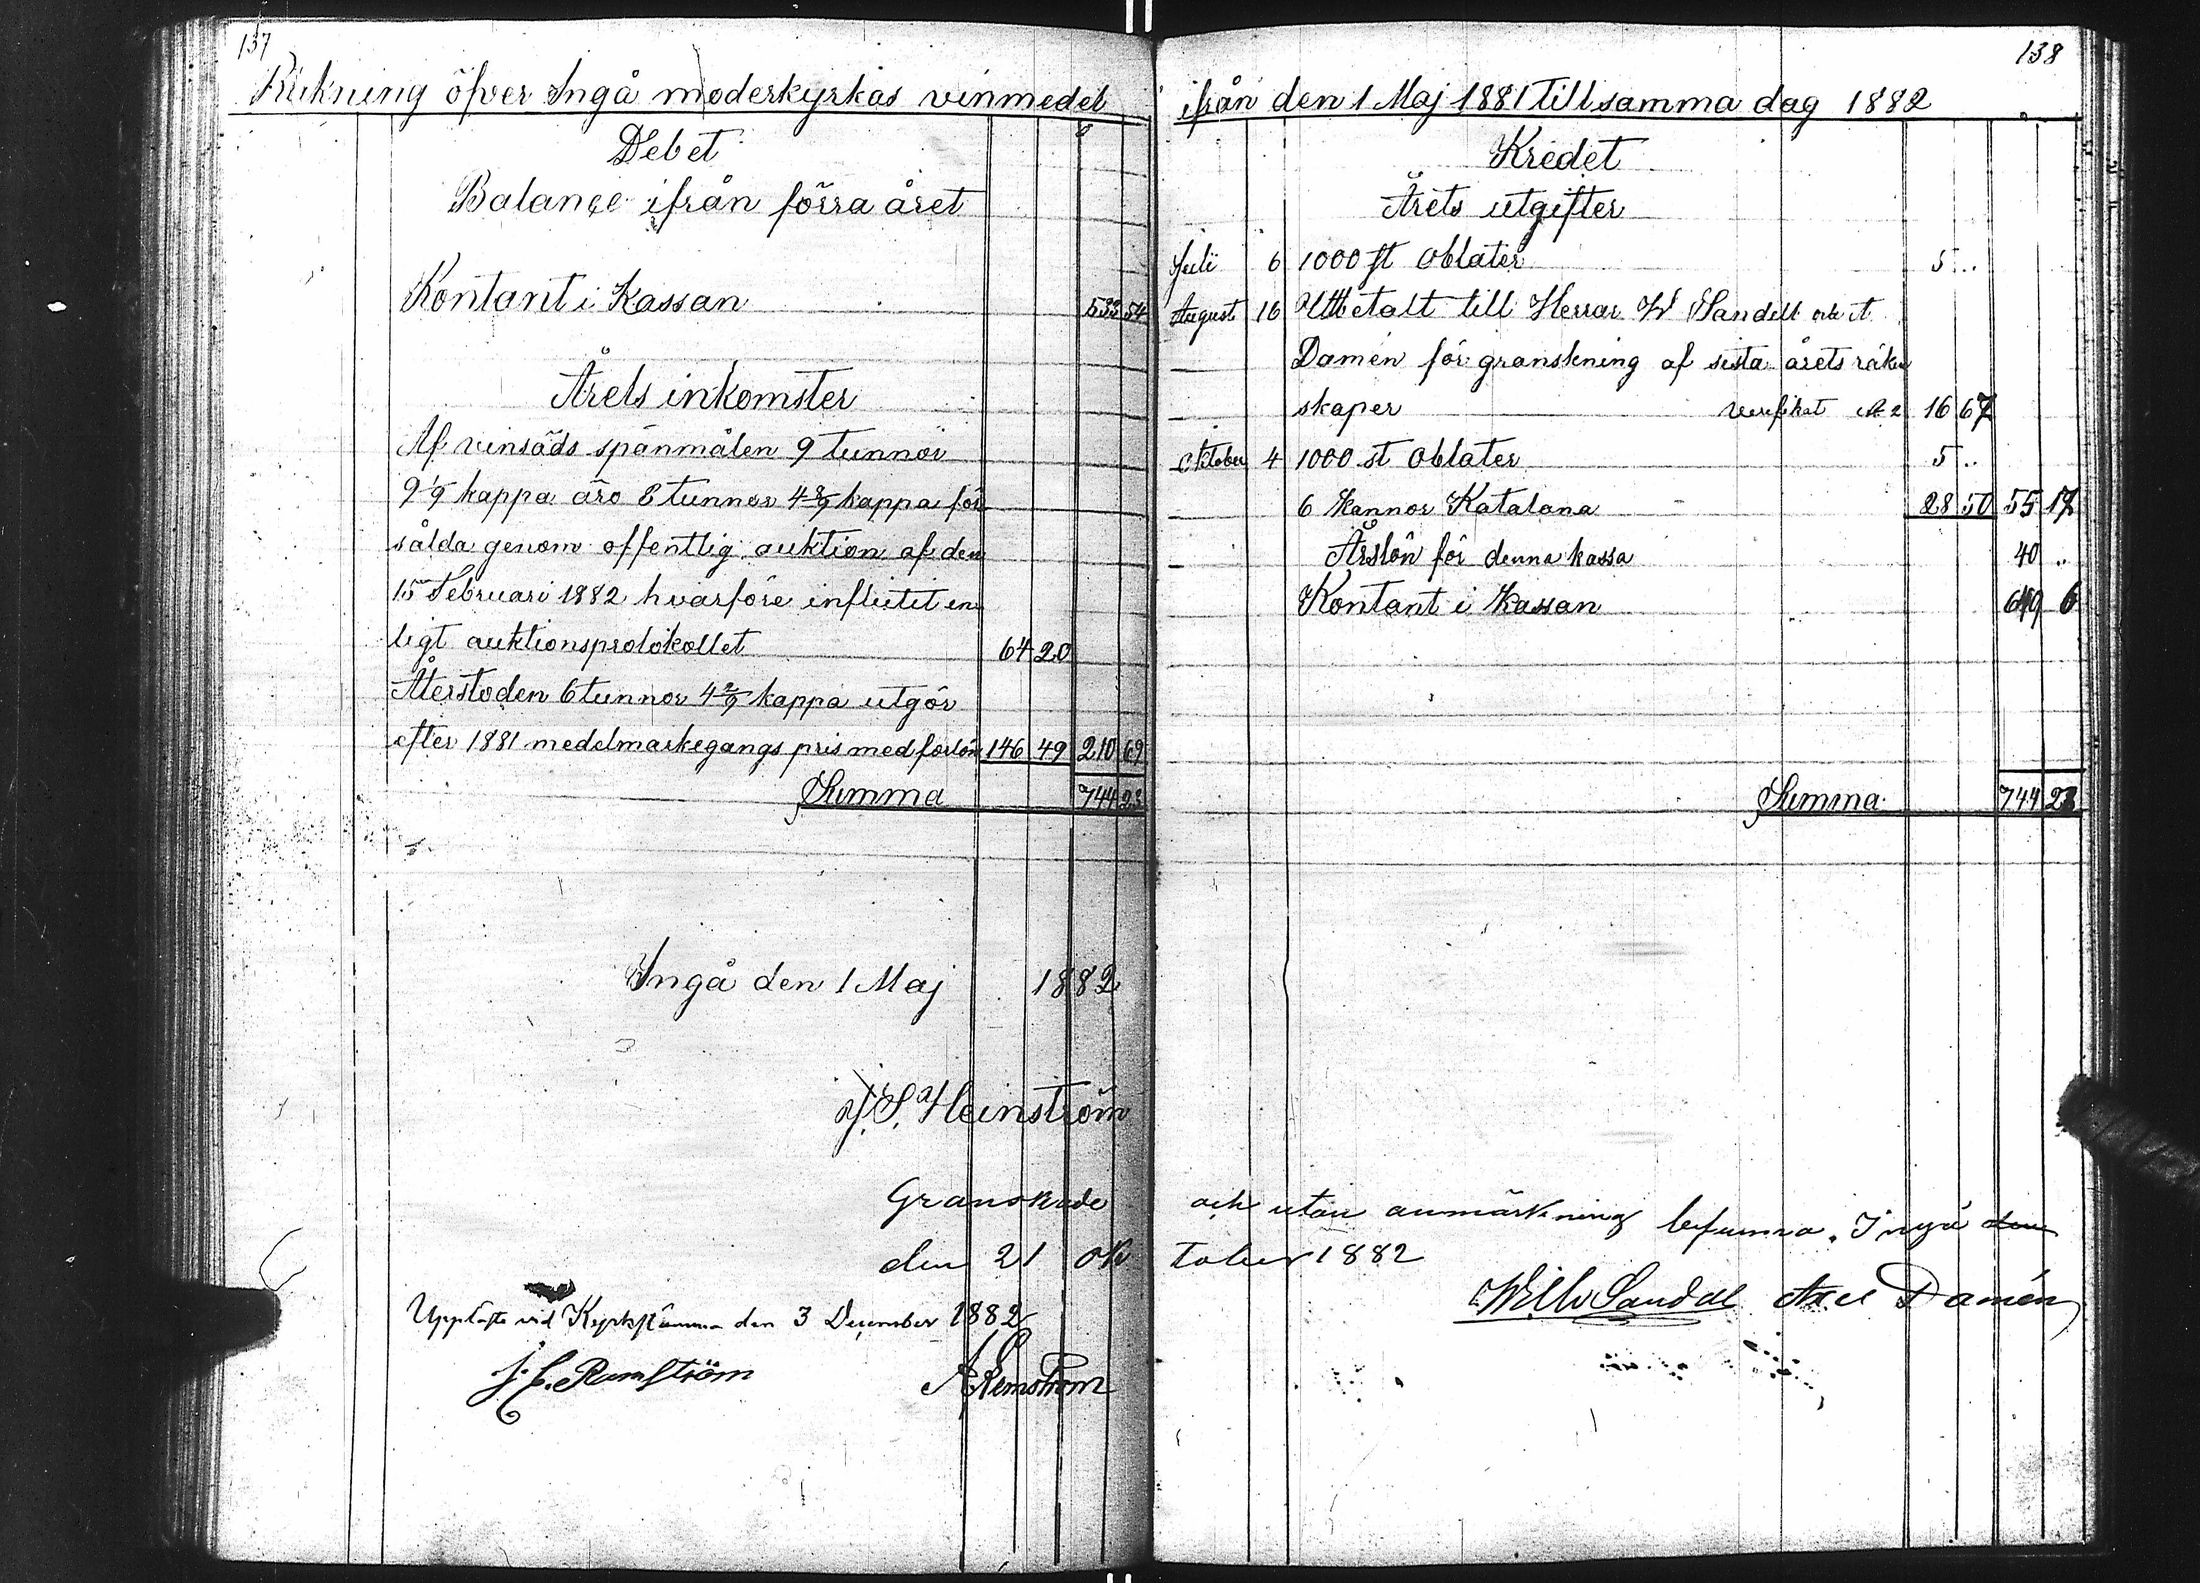 137
Räkning öfver Ingå moderkyrkas vinmedel
Debet
Balance ifrån förra året
Kontant i Kassan 533 54
Årets inkomster
Af vinsäds spanmålen 9 tunnor
9 1/9 kappa äro 2 tunnor 4 8/9 kappa för
sålda genom offentlig auktion af den
15 Februari 1882 hvarföre influtit en
ligt auktionsprotokollet 64 20
Återstoden 6 tunnor 4 2/9 kappa utgör
efter 1881 medelmarkegangs pris med forlön 146 49 210 69
Summa 744 23
Ingå den 1 Maj 1882
J. S. Heinström
Granskade
den 21 ok
Uppläste vid Kyrkstämma den 3 December 1882
138
ifrån den 1 Maj 1881 till samma dag 1882
Kredet
Årets utgifter
Juli 6 1000 st Oblater 5 ..
August 16 Utbetalt till Herrar W Sandell och A
Damén för granskning af sista årets räken
skaper verefikat 2 16 67
Oktober 4 1000 st Oblater 5 ..
6 Kannor Katalana 28 50 55 17
Årslön för denna kassa 40 ..
Kontant i Kassan 649 6
Summa 744 23
och utan anmärkning befunna. Ingå den
tober 1882
Wilh Sandell Axel Damén